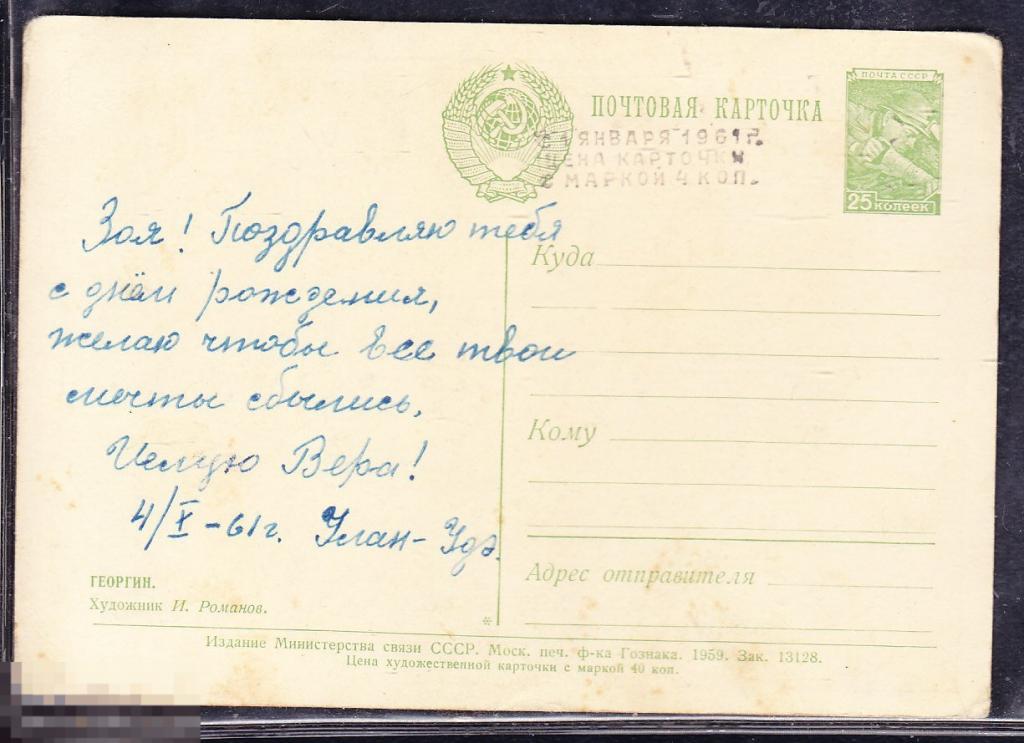 ПОЧТА СССР
25 копеек
ПОЧТОВАЯ КАРТОЧКА
ЯНВАРЯ 1961 г.
ЦЕНА КАРТОЧКИ
С МАРКОЙ 4 КОП.
Зоя! Поздравляю тебя
с днём рождения,
желаю чтобы все твои
мечты сбылись.
Целую Вера!
4/X-61г. Улан-Удэ.
Куда
Кому
Адрес отправителя
ГЕОРГИН.
Художник И. Романов.
Издание Министерства связи СССР. Моск. печ. ф-ка Гознака. 1959. Зак. 13128.
Цена художественной карточки с маркой 40 коп.